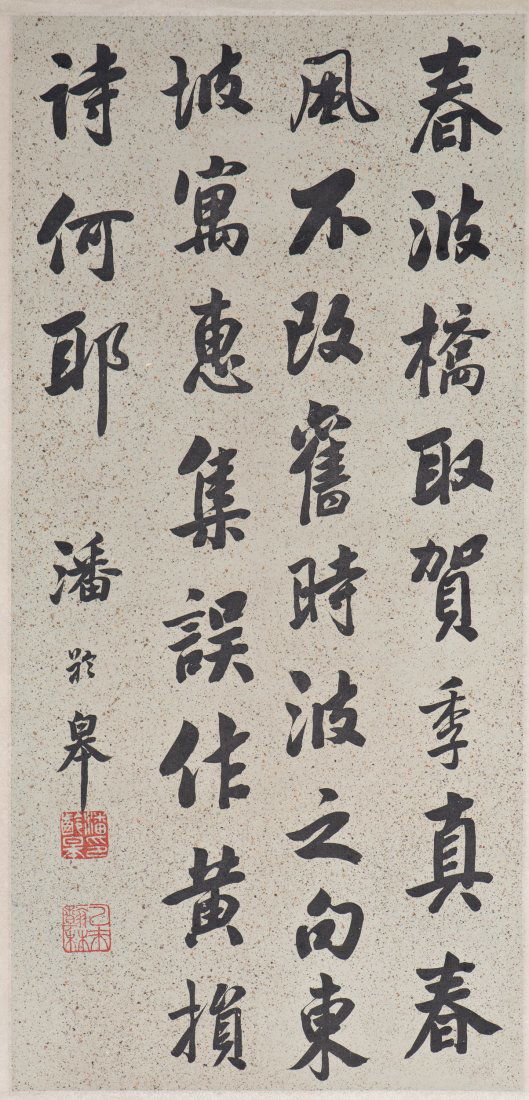 春波橋取賀季真春
風不改舊時波之句東
坡寓惠集誤作黃損
詩何耶 潘齡皋
潘印齡皋
乙未翰林